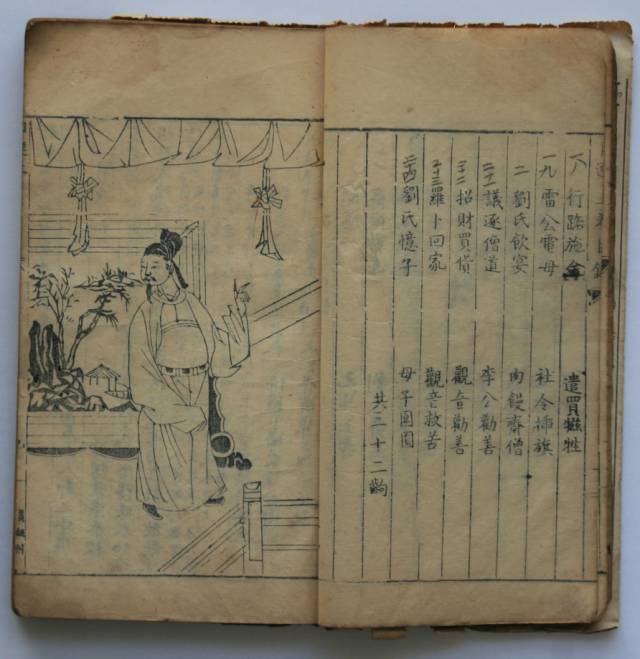 一八 行路施金 遣買犧牲
一九 雷公電母 社令插旗
二 劉氏飲宴 肉饅齋僧
二十一 議逐僧道 李公勸善
二十二 招財買貨 觀音勸善
二十三 羅卜回家 觀音救苦
二十四 劉氏憶子 母子團圓
共三十二齣